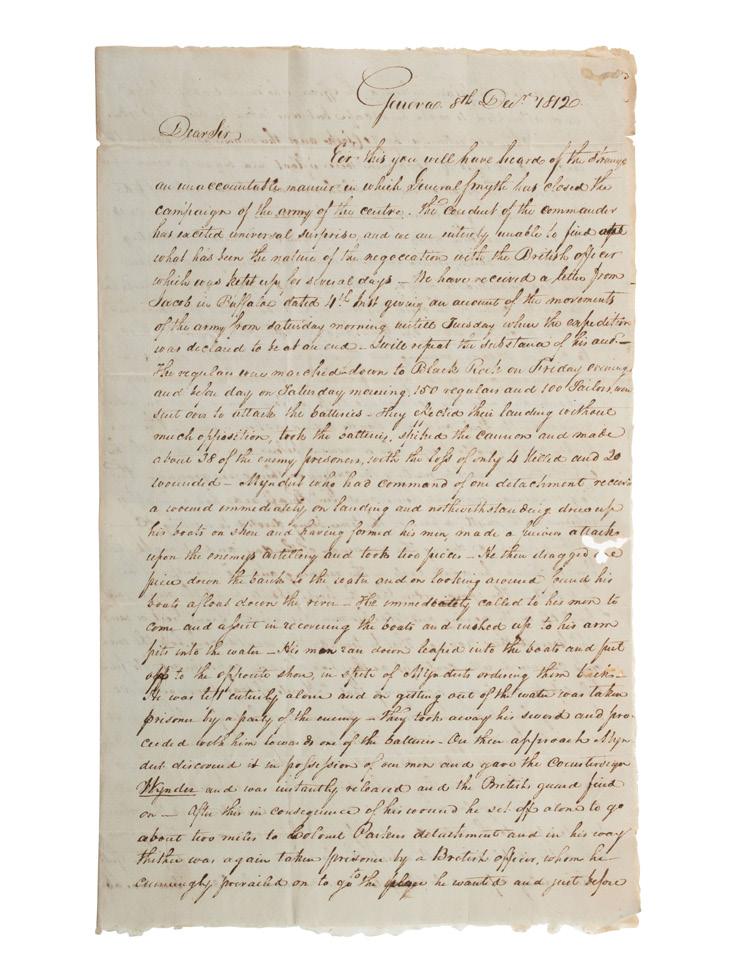 Geneva 8th Decr. 1812
Dear Sir,
Eer this you will have heard of the strange
an unaccountable manner in which General Smyth has closed the
campaign of the army of the centre. The conduct of the commander
has excited universal surprise, and we are entirely unable to find out
what has been the nature of the negociation with the British officer
which was kept up for several days – We have received a letter from
Jacob in Buffaloe dated 4th Inst giving an account of the movements
of the army from saturday morning untill Tuesday when the expedition
was declared to be at an end – I will repeat the substance of his
The regulars were marched down to Black Rock on Friday evening
and before day on Saturday morning, 150 regulars and 100 Sailors, were
sent over to attack the batteries – They effected their landing without
much opposition, took the batteries, spiked the cannon and made
about 38 of the enemy prisoners, with the loss of only 4 killed and 20
wounded – Myndert who had command of one detachment received
a wound immediately on landing and nothwithstanding drew up
his boats on shore and having formed his men, made a furious attack
upon the enemys artillery and took two pieces – He then dragged
piece down the bank to the water and on looking around found his
boats afloat down the river – He immediately called to his men to
come and assist in recovering the boats and rushed up to his arm
pits into the water – His men ran down leaped into the boats and put
off to the opposite shore, in spite of Mynderts ordering them back –
He was left entirely alone and on getting out of the water was taken
prisoner by a party of the enemy – They took away his sword and pro-
ceeded with him towards one of the batteries – On their approach Myn
dert discovered it in possession of our men and gave the Countersign
Wynder and was instantly released and the British guard fired
on – After this in consequence of his wound he set off alone to go
about two miles to Colonel Parkers detachment and in his way
thither was again taken prisoner by a British officer, whom he
cunningly prevailed on to go to the place he wanted and just before